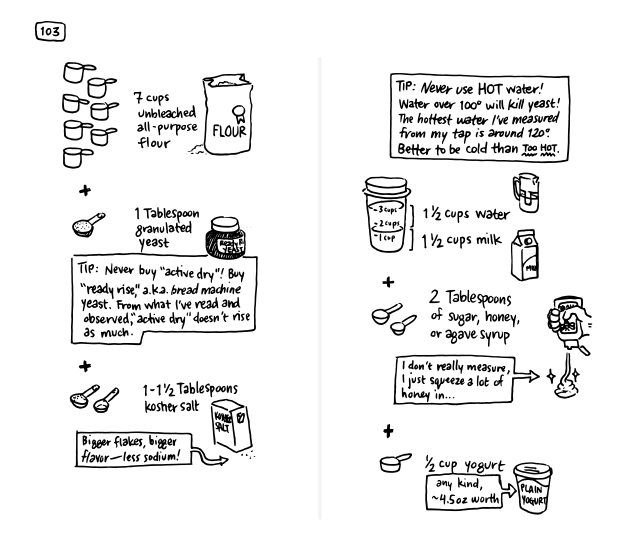 103
7 cups
unbleached
all-purpose
flour
FLOUR
+
1 Tablespoon
granulated
yeast
READY RI
YEAST
TIP: Never buy "active dry"! Buy
"ready rise," a.k.a. bread machine
yeast. From what I've read and
observed, "active dry" doesn't rise
as much.
+
1-1½ Tablespoons
kosher salt
KOSHER
SALT
Bigger flakes, bigger
flavor—less sodium!
TIP: Never use HOT water!
Water over 100° will kill yeast!
The hottest water I've measured
from my tap is around 120°.
Better to be cold than TOO HOT.
-3 cups
-2 cups
-1 cup
1½ cups water
1½ cups milk
MILK
+
2 Tablespoons
of sugar, honey,
or agave syrup
I don't really measure,
I just squeeze a lot of
honey in...
+
½ cup yogurt
any kind,
~4.5oz worth
PLAIN
YOGURT